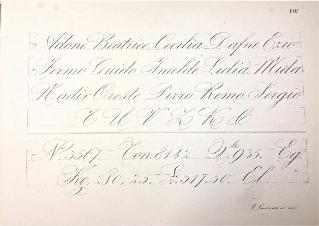 VIII
Adone Beatrice Cecilia Dafne Ezio
Fermo Guido Imelde Lidia Mida
Nadir Oreste Pirro Remo Sergio
T U V Z K
N. 5567 - Ton. 8142 - 955. Eg.
Kg. 280,25 - £. 517,50. Ef.